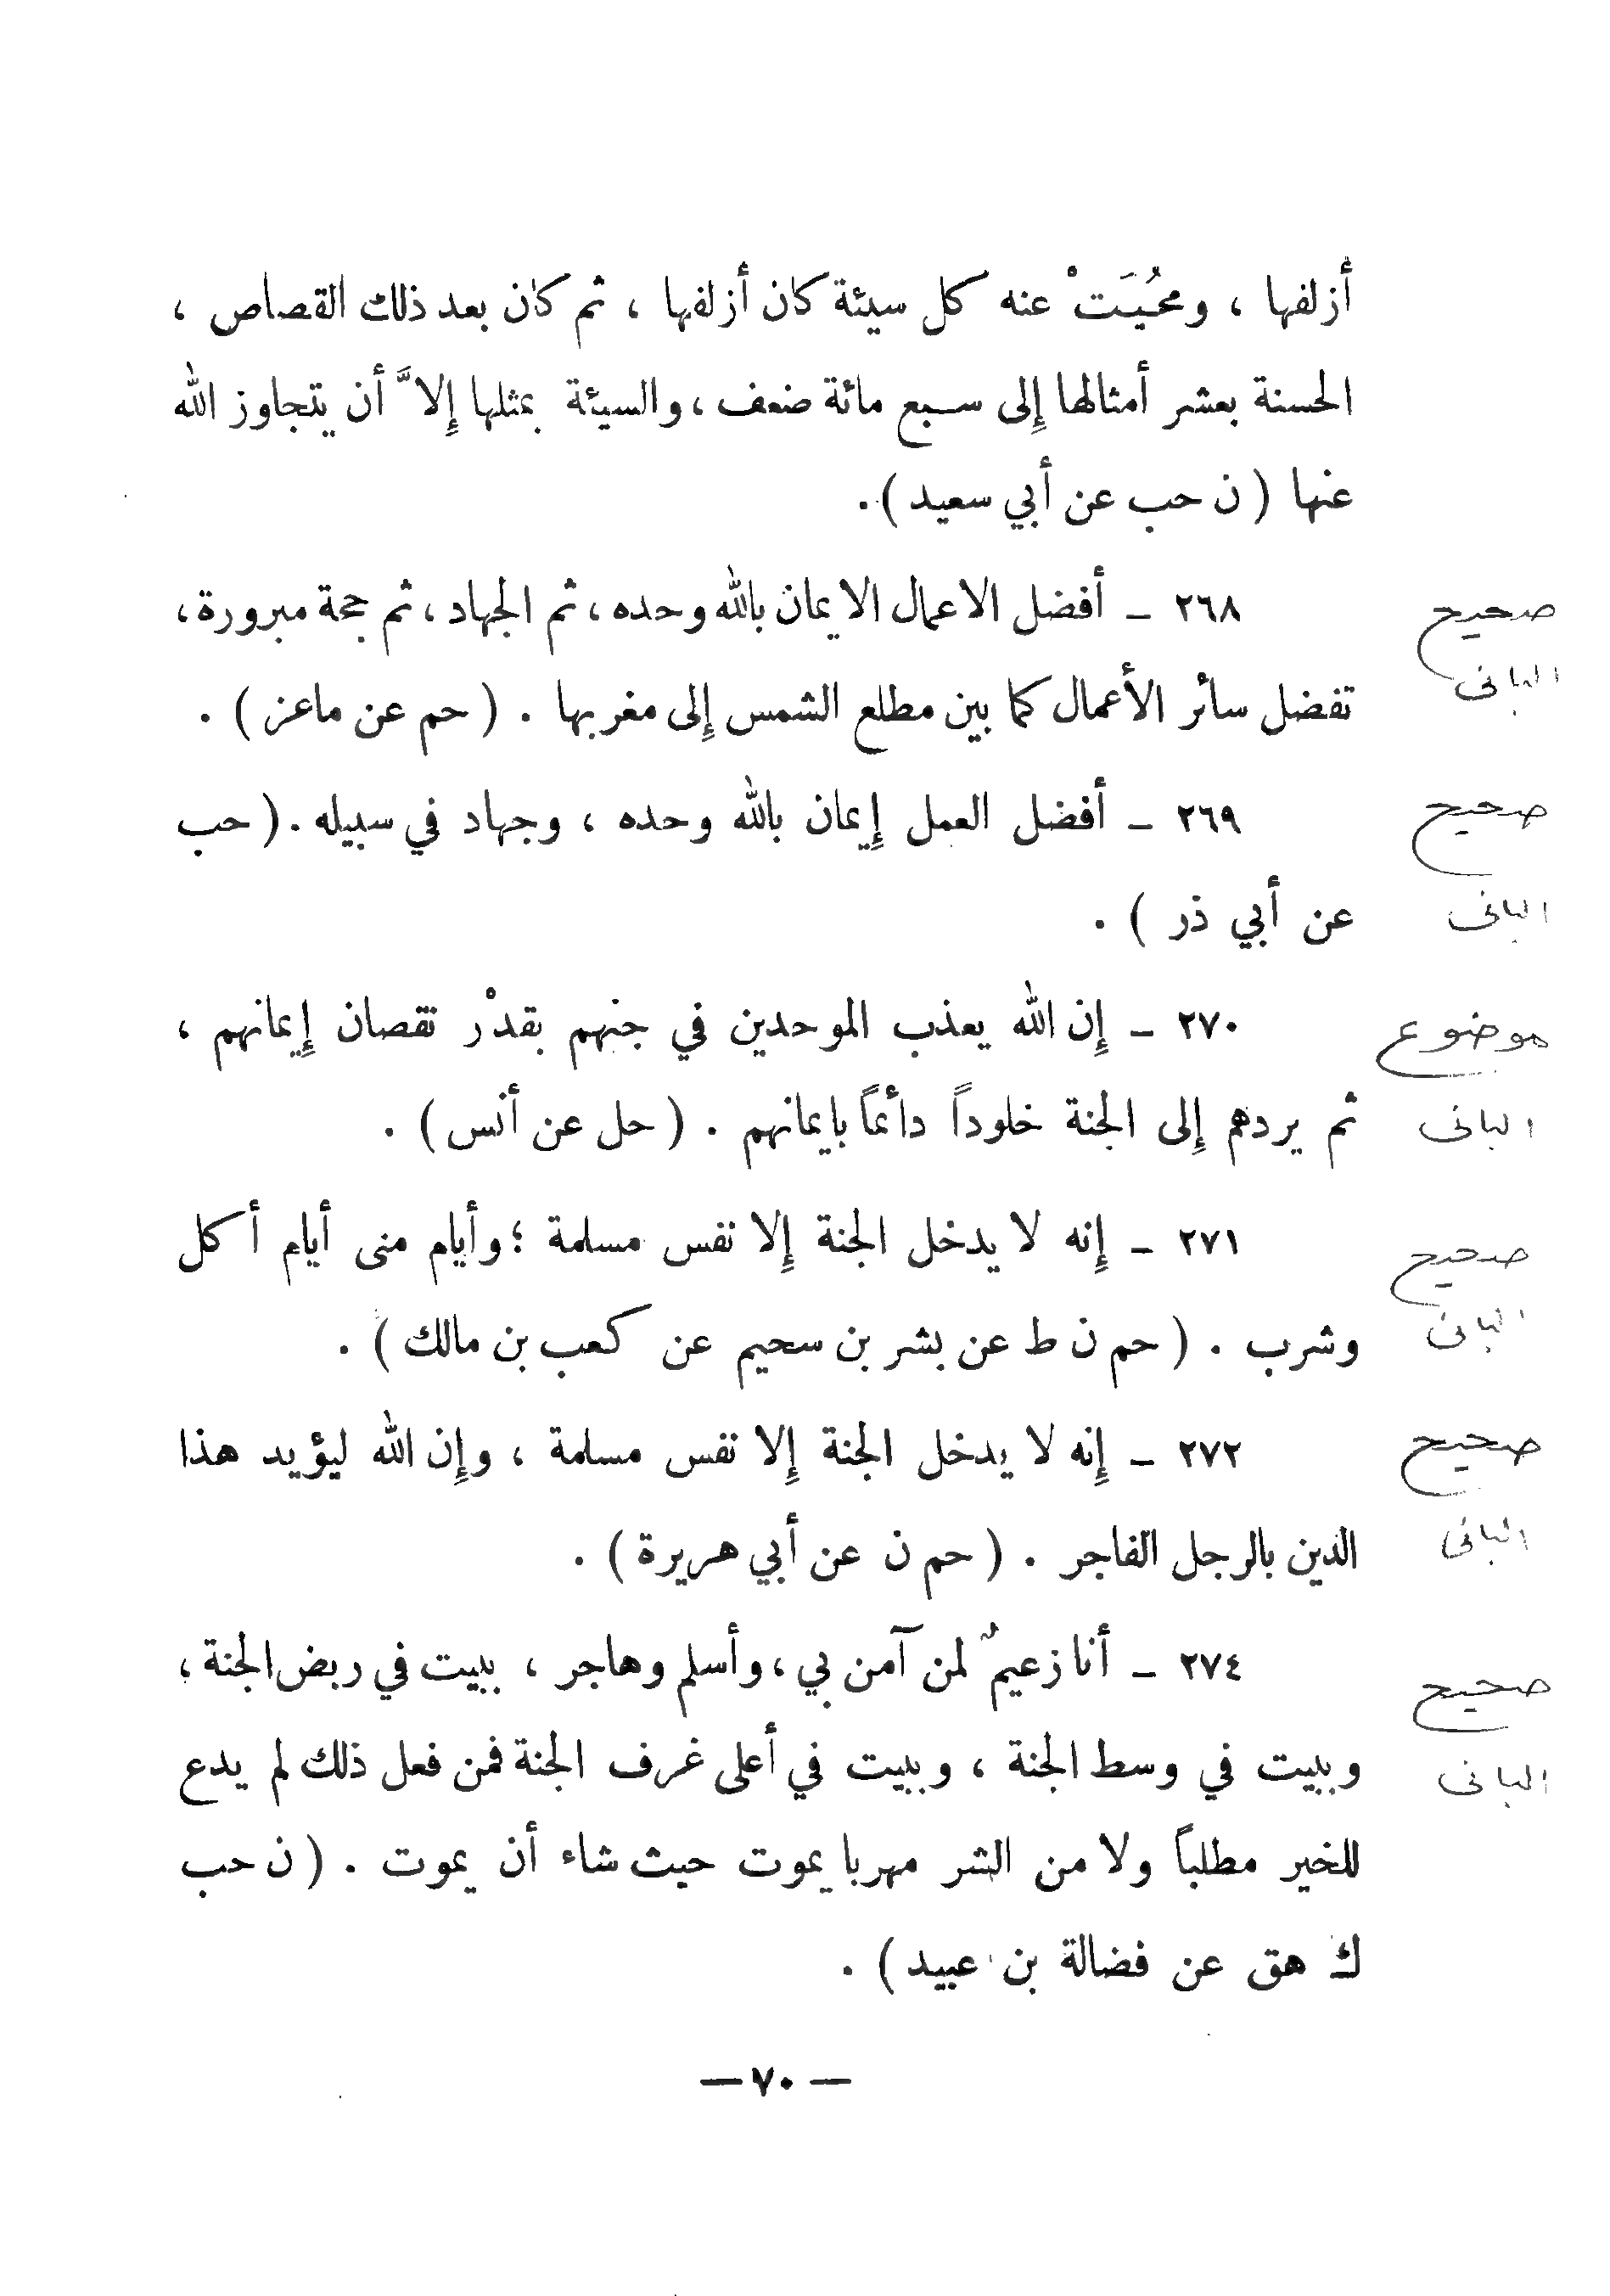 أزلفها ، ومحُيَت ْ عنه كل سيئة كان أزلفها ، ثم كان بعد ذلك القصاص ،
الحسنة بعشر أمثالها إِلى سبع مائة ضعف ، والسيئة بمثلها إِلاَّ أن يتجاوز الله
عنها ( ن حب عن أبي سعيد ) .
٢٦٨ ـ أفضل الاعمال الايمان بالله وحده ، ثم الجهاد ، ثم حجة مبرورة ،
صحيح
البانى
تفضل سائر الأعمال كما بين مطلع الشمس إِلى مغربها . ( حم عن ماعز ) .
٢٦٩ ـ أفضل العمل إِيمان بالله وحده ، وجهاد في سبيله . ( حب
صحيح
عن أبي ذر ) .
البانى
٢٧٠ ـ إِن الله يعذب الموحدين في جنهم بقدْر نقصان إِيمانهم ،
موضوع
ثم يردهم إِلى الجنة خلوداً دائماً بايمانهم . ( حل عن أنس ) .
البانى
٢٧١ ـ إِنه لا يدخل الجنة إِلا نفس مسلمة ؛ وأيام منى أيام أكل
صحيح
البانى
وشرب . ( حم ن ط عن بشر بن سحيم عن كعب بن مالك ) .
٢٧٢ ـ إِنه لا يدخل الجنة إِلا نفس مسلمة ، وإِن الله ليؤيد هذا
صحيح
البانى
الدين بالرجل الفاجر . ( حم ن عن أبي هريرة ) .
٢٧٤ ـ أنا زعيمٌ لمن آمن بي ، وأسلم وهاجر ، ببيت في ربض الجنة ،
صحيح
وببيت في وسط الجنة ، وببيت في أعلى غرف الجنة فمن فعل ذلك لم يدع
البانى
للخير مطلباً ولا من الشر مهربا يموت حيث شاء أن يموت . ( ن حب
ك هق عن فضالة بن عبيد ) .
— ٧٠ —